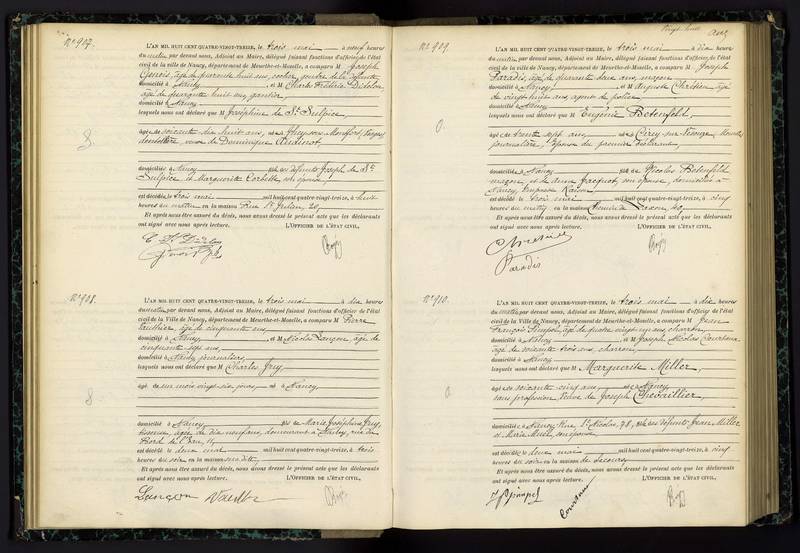 Nº 907.
L'AN MIL HUIT CENT QUATRE-VINGT-TREIZE, le trois mai à neuf heures
du matin par devant nous, Adjoint au Maire, délégué faisant fonctions d'officier de l'état
civil de la ville de Nancy, département de Meurthe-et-Moselle, a comparu M Joseph
âgé de quarante huit ans, cocher, gendre de la défunte
domicilié à Nancy et M Charles Frédéric
âgé de quarante huit ans,
domicilié à Nancy
lesquels nous ont déclaré que M Joséphine de St Sulpice,
âgée de soixante dix huit ans, née à Monfort, Vosges
dentellière, veuve de Dominique Audinot
domiciliée à Nancy fille des défunts Joseph de St
Sulpice et Marguerite son épouse,
est décédée le trois mai mil huit cent quatre-vingt-treize, à huit
heures du matin en la maison Rue St Julien, 20,
Et après nous être assuré du décès, nous avons dressé le présent acte que les déclarants
ont signé avec nous après lecture. L'OFFICIER DE L'ÉTAT CIVIL,
Nº 908.
L'AN MIL HUIT CENT QUATRE-VINGT-TREIZE, le trois mai à dix heures
du matin par devant nous, Adjoint au Maire, délégué faisant fonctions d'officier de l'état
civil de la Ville de Nancy, département de Meurthe-et-Moselle, a comparu M Pierre
Vauthier, âgé de cinquante ans
domicilié à Nancy, et M Nicolas Lançon, âgé de
cinquante sept ans
domicilié à Nancy journaliers
lesquels nous ont déclaré que M Charles Jray
âgé de un mois vingt-six jours, né à Nancy
domicilié à Nancy fils de Marie Joséphine Jray,
âgée de dix neuf ans, demeurant à Nancy, rue du
Bord de l'Eau, 11,
est décédé le deux mai mil huit cent quatre-vingt-treize, à trois
heures du soir en la maison sus dite,
Et après nous être assuré du décès, nous avons dressé le présent acte que les déclarants
ont signé avec nous après lecture. L'OFFICIER DE L'ÉTAT CIVIL,
Lançon Vauthier
Nº 909
L'AN MIL HUIT CENT QUATRE-VINGT-TREIZE, le trois mai à dix heures
du matin par devant nous, Adjoint au Maire, délégué faisant fonctions d'officier de l'état
civil de la ville de Nancy, département de Meurthe-et-Moselle, a comparu M Joseph
Paradis, âgé de quarante deux ans, maçon
domicilié à Nancy et M Auguste Chrétien, âgé
de vingt huit ans, agent de police
domicilié à Nancy
lesquels nous ont déclaré que M Eugénie Betenfeld,
âgée de trente sept ans née à Cirey-sur-Vezouze, Meurthe
journalière, épouse du premier déclarant,
domiciliée à Nancy fille de Nicolas Betenfeld
maçon, et de Anne Jacquot, son épouse, domiciliés à
Nancy,
est décédée le trois mai mil huit cent quatre-vingt-treize, à cinq
heures du matin en la maison
Et après nous être assuré du décès, nous avons dressé le présent acte que les déclarants
ont signé avec nous après lecture. L'OFFICIER DE L'ÉTAT CIVIL,
Chrétien
Paradis
Nº 910.
L'AN MIL HUIT CENT QUATRE-VINGT-TREIZE, le trois mai à dix heures
du matin par devant nous, Adjoint au Maire, délégué faisant fonctions d'officier de l'état
civil de la Ville de Nancy, département de Meurthe-et-Moselle, a comparu M Jean
François âgé de quatre vingt un ans, charron,
domicilié à Nancy et M Joseph Nicolas
âgé de soixante trois ans, charron,
domicilié à Nancy
lesquels nous ont déclaré que M Marguerite Miller,
âgée de soixante cinq ans née à Nancy
sans profession, veuve de Joseph Chevallier,
domiciliée à Nancy Rue St Nicolas, 78, fille des défunts Jean Miller
et Marie son épouse
est décédée le deux mai mil huit cent quatre-vingt-treize, à cinq
heures du soir en la maison de Secours,
Et après nous être assuré du décès, nous avons dressé le présent acte que les déclarants
ont signé avec nous après lecture. L'OFFICIER DE L'ÉTAT CIVIL,